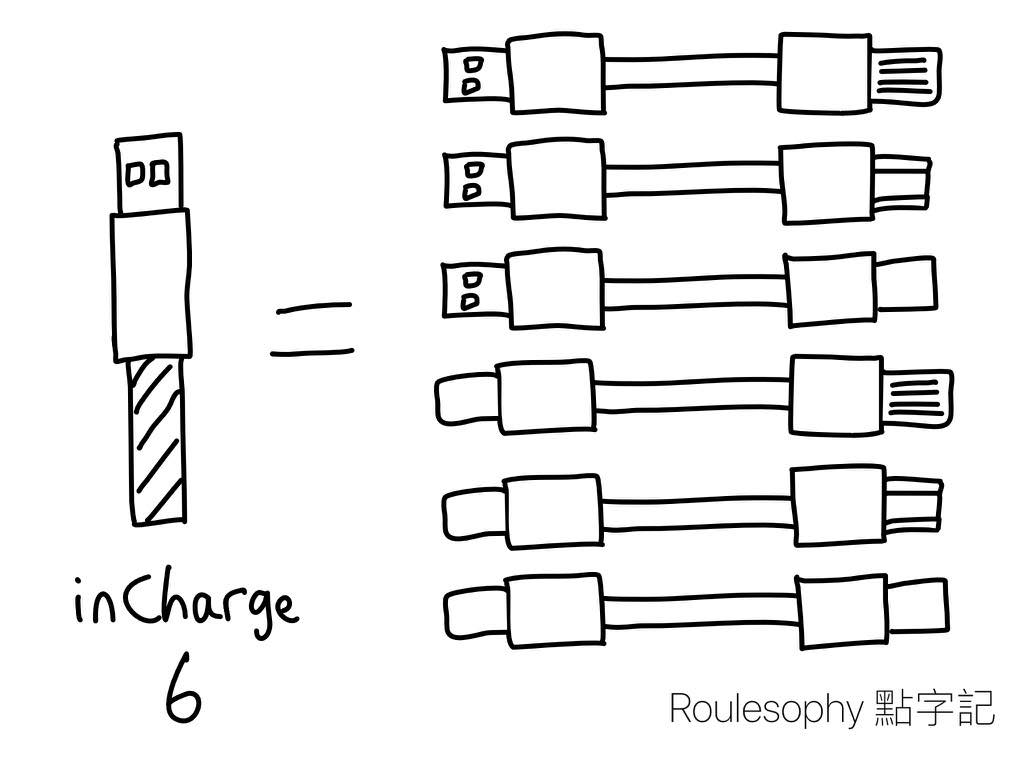 inCharge
6
Roulesophy 點字記